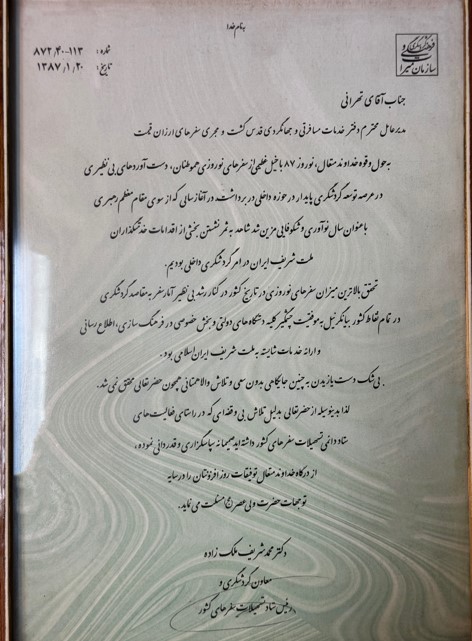 بنام خدا
شماره: ۸۷۲/۴۰-۱۱۳
تاریخ: ۱۳۸۷/۱/۲۰
سازمان میراث
جناب آقای تهرانی
مدیرعامل محترم دفتر خدمات مسافرتی و جهانگردی قدس گشت و مجری سفرهای ارزان قیمت
به حول و قوه خداوند متعال، نوروز ۸۷ با خیل عظیمی از سفرهای نوروزی هموطنان، دست آوردهای بی نظیری
در عرصه توسعه گردشگری پایدار در حوزه داخلی در بر داشت. در آغاز سالی که از سوی مقام معظم رهبری
با عنوان سال نوآوری و شکوفایی مزین شد شاهد به ثمر نشستن بخشی از اقدامات خدمتگذاران
ملت شریف ایران در امر گردشگری داخلی بودیم.
تحقق بالاترین میزان سفرهای نوروزی در تاریخ کشور در کنار رشد بی نظیر آمار سفر به مقاصد گردشگری
در تمام نقاط کشور بیانگر نیل به موفقیت چشمگیر کلیه دستگاه های دولتی و بخش خصوصی در فرهنگ سازی، اطلاع رسانی
و ارائه خدمات شایسته به ملت شریف ایران اسلامی بود.
بی شک دست یازیدن به چنین جایگاهی بدون سعی و تلاش والا همتانی همچون حضرتعالی محقق نمی شد.
لذا بدینوسیله از حضرتعالی بدلیل تلاش بی وقفه ای که در راستای فعالیت های
ستاد دائمی تسهیلات سفرهای کشور داشته اید صمیمانه سپاسگزاری و قدردانی نموده،
از درگاه خداوند متعال توفیقات روز افزونتان را در سایه
توجهات حضرت ولی عصر (عج) مسئلت می نماید.
دکتر محمد شریف ملک زاده
معاون گردشگری و
رئیس ستاد تسهیلات سفرهای کشور